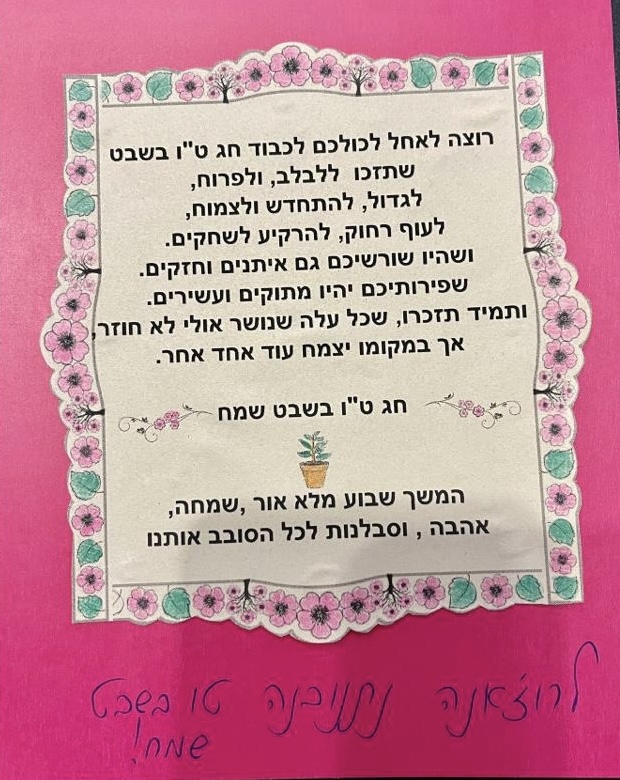 רוצה לאחל לכולכם לכבוד חג ט"ו בשבט
שתזכו ללבלב, ולפרוח,
לגדול, להתחדש ולצמוח,
לעוף רחוק, להרקיע לשחקים.
ושהיו שורשיכם גם איתנים וחזקים.
שפירותיכם יהיו מתוקים ועשירים.
ותמיד תזכרו, שכל עלה שנושר אולי לא חוזר,
אך במקומו יצמח עוד אחד אחר.
חג ט"ו בשבט שמח
המשך שבוע מלא אור ,שמחה,
אהבה , וסבלנות לכל הסובב אותנו
לרוז'אנה טו בשבט
שמח!